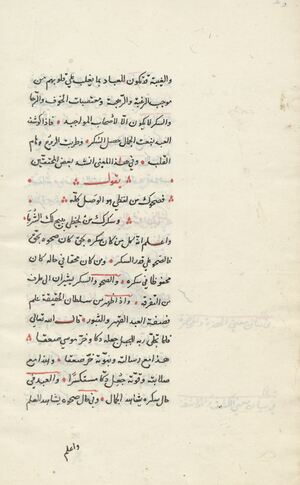 والغيبة قد تكون للعباد بما يغلب على قلوبهم من
موجب الرغبة والرهبة ومقتضيات الخوف والرجا
والسكر لا يكون الا لاصحاب المواجيد * فاذا كوشف
العبد بنعت الجمال حصل السكر * وطرب الروح وهام
القلب * وفي هذا المعنى انشد بعض المحققين
يقول
فصحوك من لفظي هو الوصل كله *
* وسكرك من لحظي يبيح لك الشربا
واعلم ان كل من كان سكره بحق كان صحوه بحق
فالصحو على قدر السكر * ومن كان محقا في حاله كان
محفوظا في سكره * والصحو والسكر يشيران الى طرف
من التفرقة * واذا ظهر من سلطان الحقيقة علم
فصفة العبد القهر والثبور * قال الله تعالى
فلما تجلى ربه للجبل جعله دكا وخر موسى صعقا *
هذا مع رسالته ونبوته خر صعقا * وهذا مع
صلابته وقوته جعل دكا متكسرا * والعبد في
حال سكره يشاهد الجمال * وفي حال صحوه يشاهد العلم
واعلم